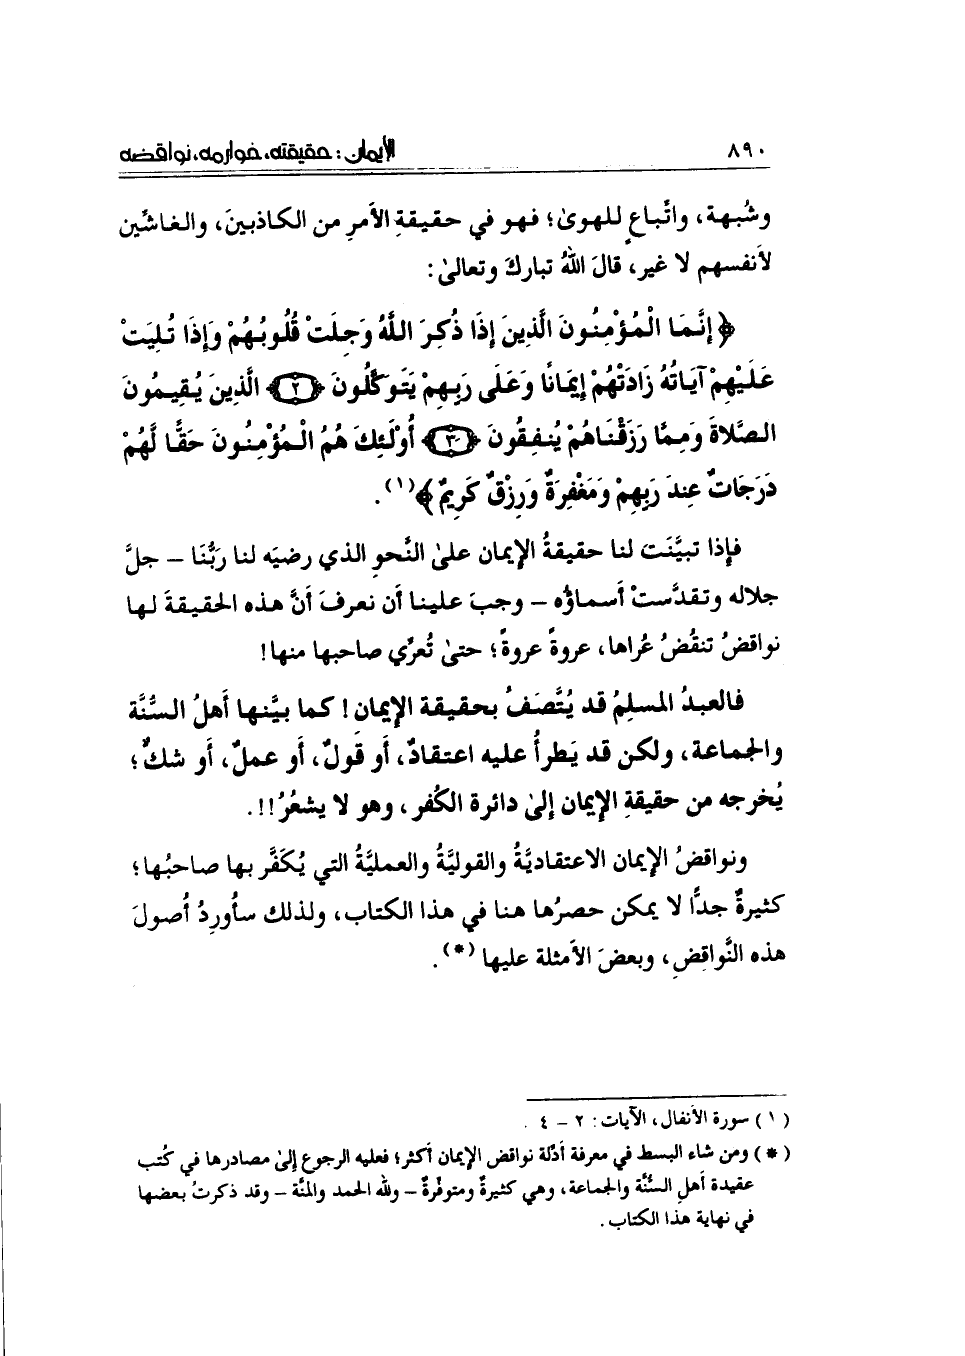 ٨٩٠ الإيمان: حقيقته، خوارمه، نواقضه
وشُبهة، واتِّباعٍ للهوىٰ؛ فهو في حقيقةِ الأمرِ من الكاذبينَ، والغاشِّين
لأنفسهم لا غير، قالَ اللهُ تباركَ وتعالىٰ:
﴿ إِنَّمَا الْمُؤْمِنُونَ الَّذِينَ إِذَا ذُكِرَ اللَّهُ وَجِلَتْ قُلُوبُهُمْ وَإِذَا تُلِيَتْ
عَلَيْهِمْ آيَاتُهُ زَادَتْهُمْ إِيمَانًا وَعَلَى رَبِهِمْ يَتَوَكَّلُونَ ﴿٢﴾ الَّذِينَ يُقِيمُونَ
الصَّلاةَ وَمِمَّا رَزَقْنَاهُمْ يُنفِقُونَ ﴿٣﴾ أُوْلَئِكَ هُمُ الْمُؤْمِنُونَ حَقًّا لَّهُمْ
دَرَجَاتٌ عِندَ رَبِهِمْ وَمَغْفِرَةٌ وَرِزْقٌ كَرِيمٌ ﴾(١).
فإذا تبيَّنَت لنا حقيقةُ الإيمان علىٰ النَّحوِ الذي رضيَه لنا ربُّنَا – جلَّ
جلاله وتقدَّستْ أسماؤُه – وجبَ علينا أن نعرفَ أنَّ هذه الحقيقةَ لها
نواقضُ تنقُضُ عُراها، عروةً عروةً؛ حتىٰ تُعرِّي صاحبها منها!
فالعبدُ المسلِمُ قد يُتَّصَفُ بحقيقة الإيمان! كما بيَّنها أهلُ السُّنَّة
والجماعة، ولكن قد يَطرأُ عليه اعتقادٌ، أو قولٌ، أو عملٌ، أو شكٌّ؛
يُخرجه من حقيقةِ الإيمان إلىٰ دائرة الكُفر، وهو لا يشعُرُ!!.
ونواقضُ الإيمان الاعتقاديَّةُ والقوليَّةُ والعمليَّةُ التي يُكَفَّر بها صاحبُها؛
كثيرةٌ جدًّا لا يمكن حصرُها هنا في هذا الكتاب، ولذلك سأُوردُ أُصولَ
هذه النَّواقِضِ، وبعضَ الأمثلة عليها (*).
(١) سورة الأنفال، الآيات: ٢ – ٤.
(*) ومن شاء البسط في معرفة أدلة نواقض الإيمان أكثر؛ فعليه الرجوع إلىٰ مصادرها في كُتب
عقيدة أهلِ السُّنَّة والجماعة، وهي كثيرةٌ ومتوفِّرةٌ – ولله الحمد والمنَّة – وقد ذكرتُ بعضها
في نهاية هذا الكتاب.